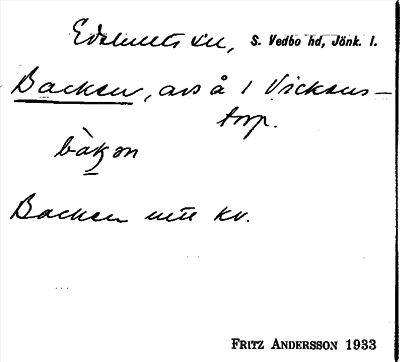 Edshults sn, S. Vedbo hd, Jönk. l.
Backen, avs å 1 Vickens-
torp.
bàkən
Backen utt kv.
FRITZ ANDERSSON 1933